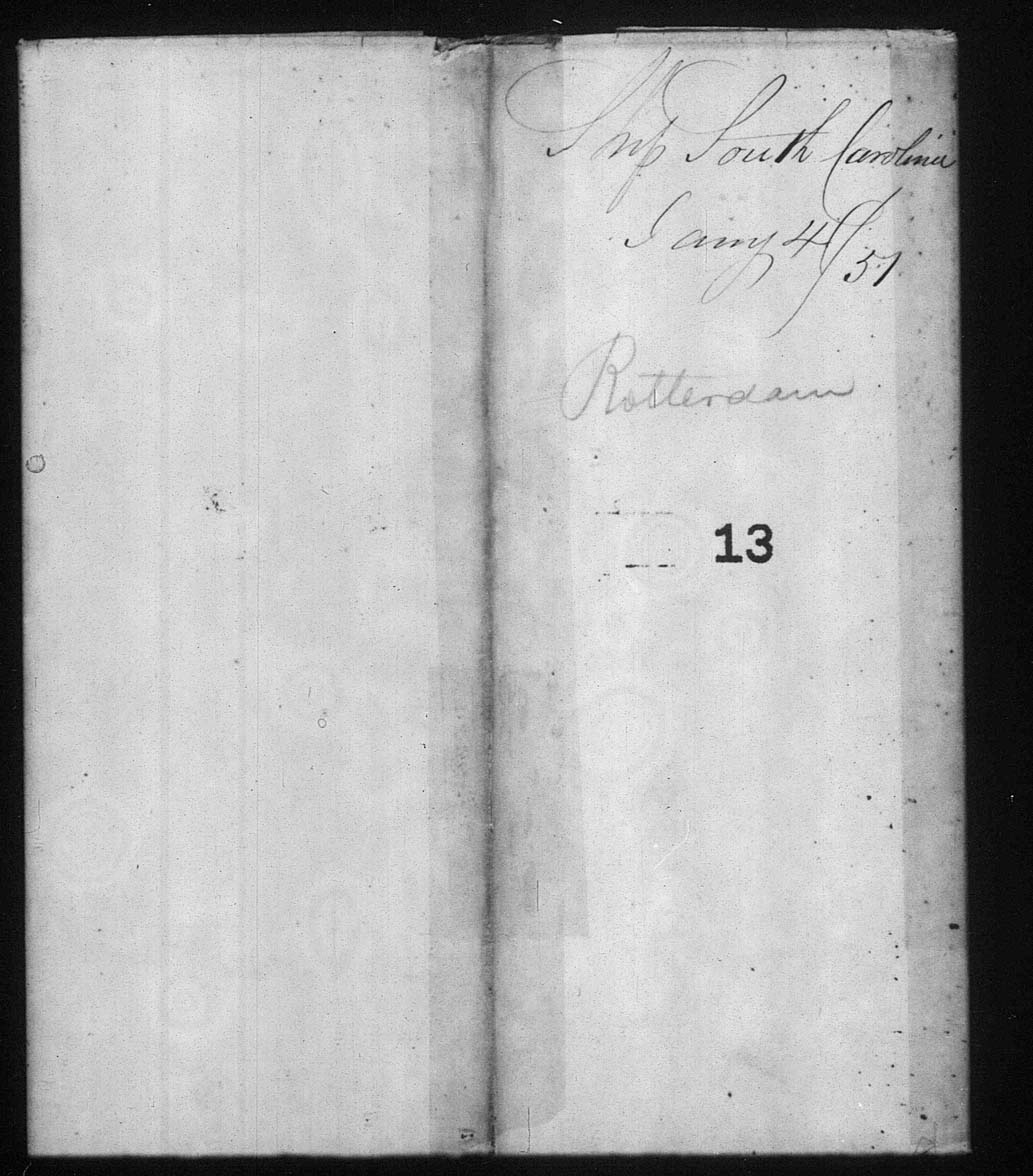 Ship South Carolina
Jany 4/51
Rotterdam
13